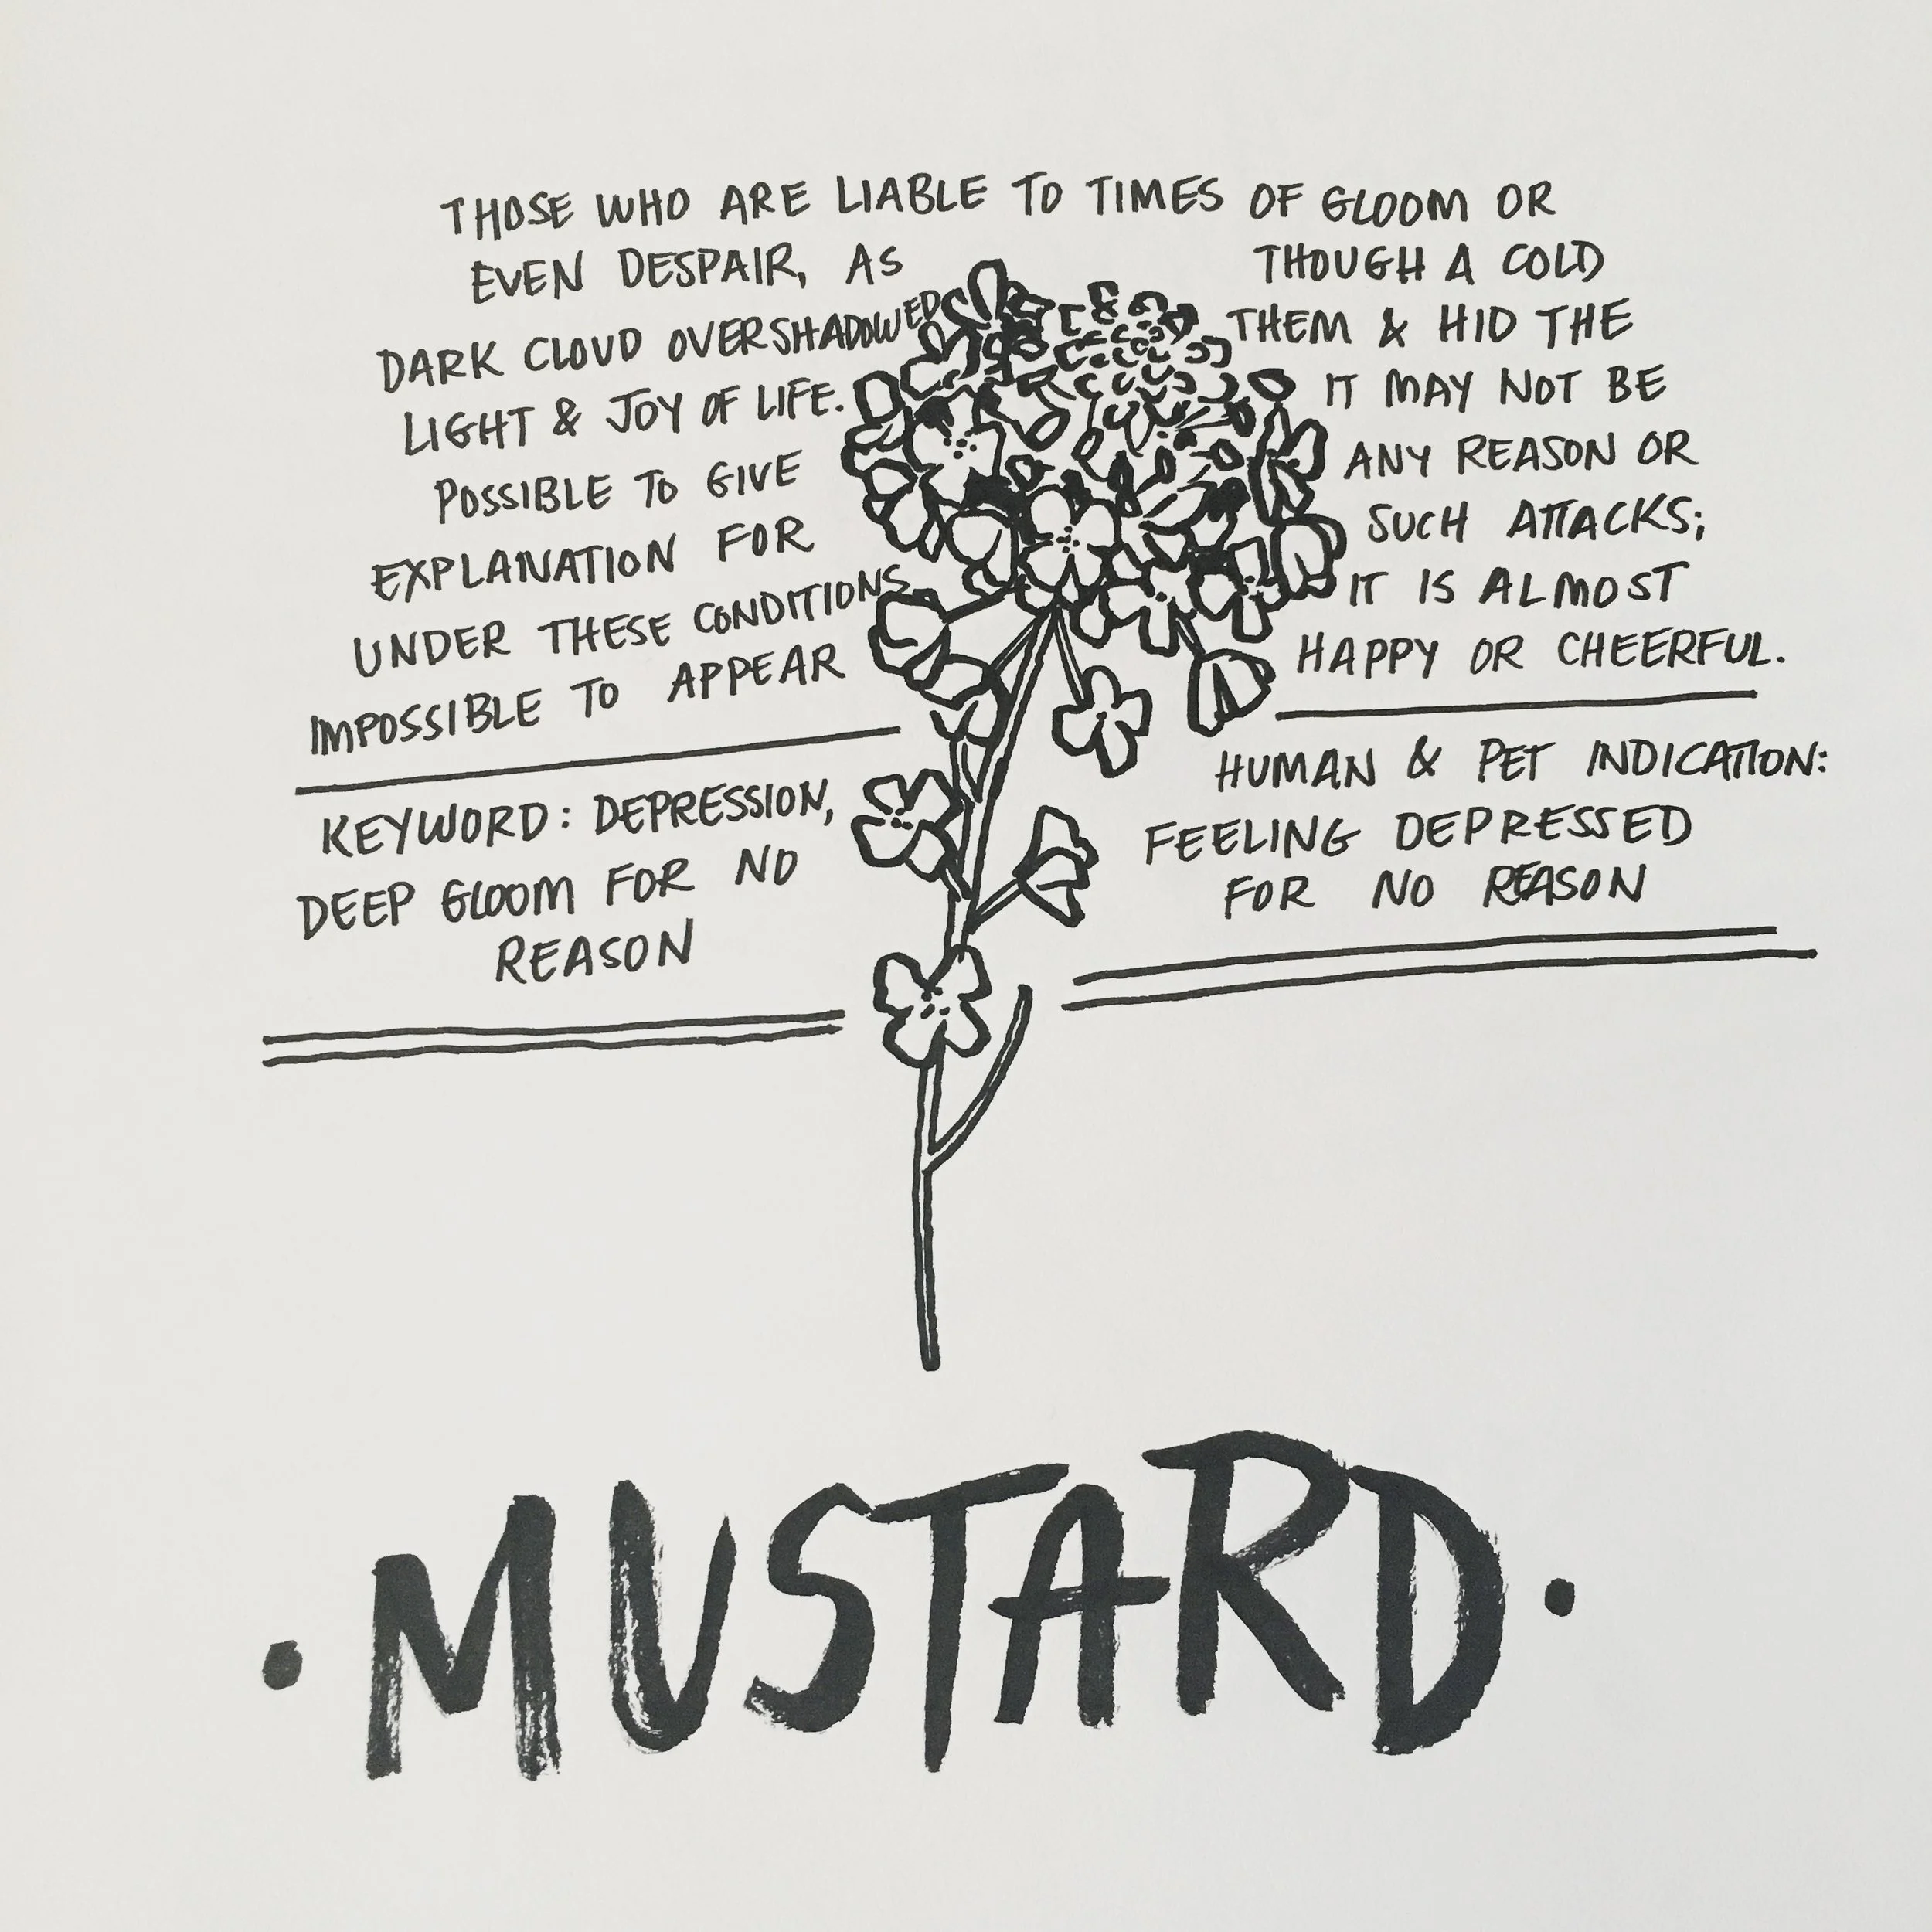 THOSE WHO ARE LIABLE TO TIMES OF GLOOM OR
EVEN DESPAIR, AS THOUGH A COLD
DARK CLOUD OVERSHADOWED THEM & HID THE
LIGHT & JOY OF LIFE. IT MAY NOT BE
POSSIBLE TO GIVE ANY REASON OR
EXPLANATION FOR SUCH ATTACKS;
UNDER THESE CONDITIONS IT IS ALMOST
IMPOSSIBLE TO APPEAR HAPPY OR CHEERFUL.
KEYWORD: DEPRESSION,
DEEP GLOOM FOR NO
REASON
HUMAN & PET INDICATION:
FEELING DEPRESSED
FOR NO REASON
• MUSTARD •